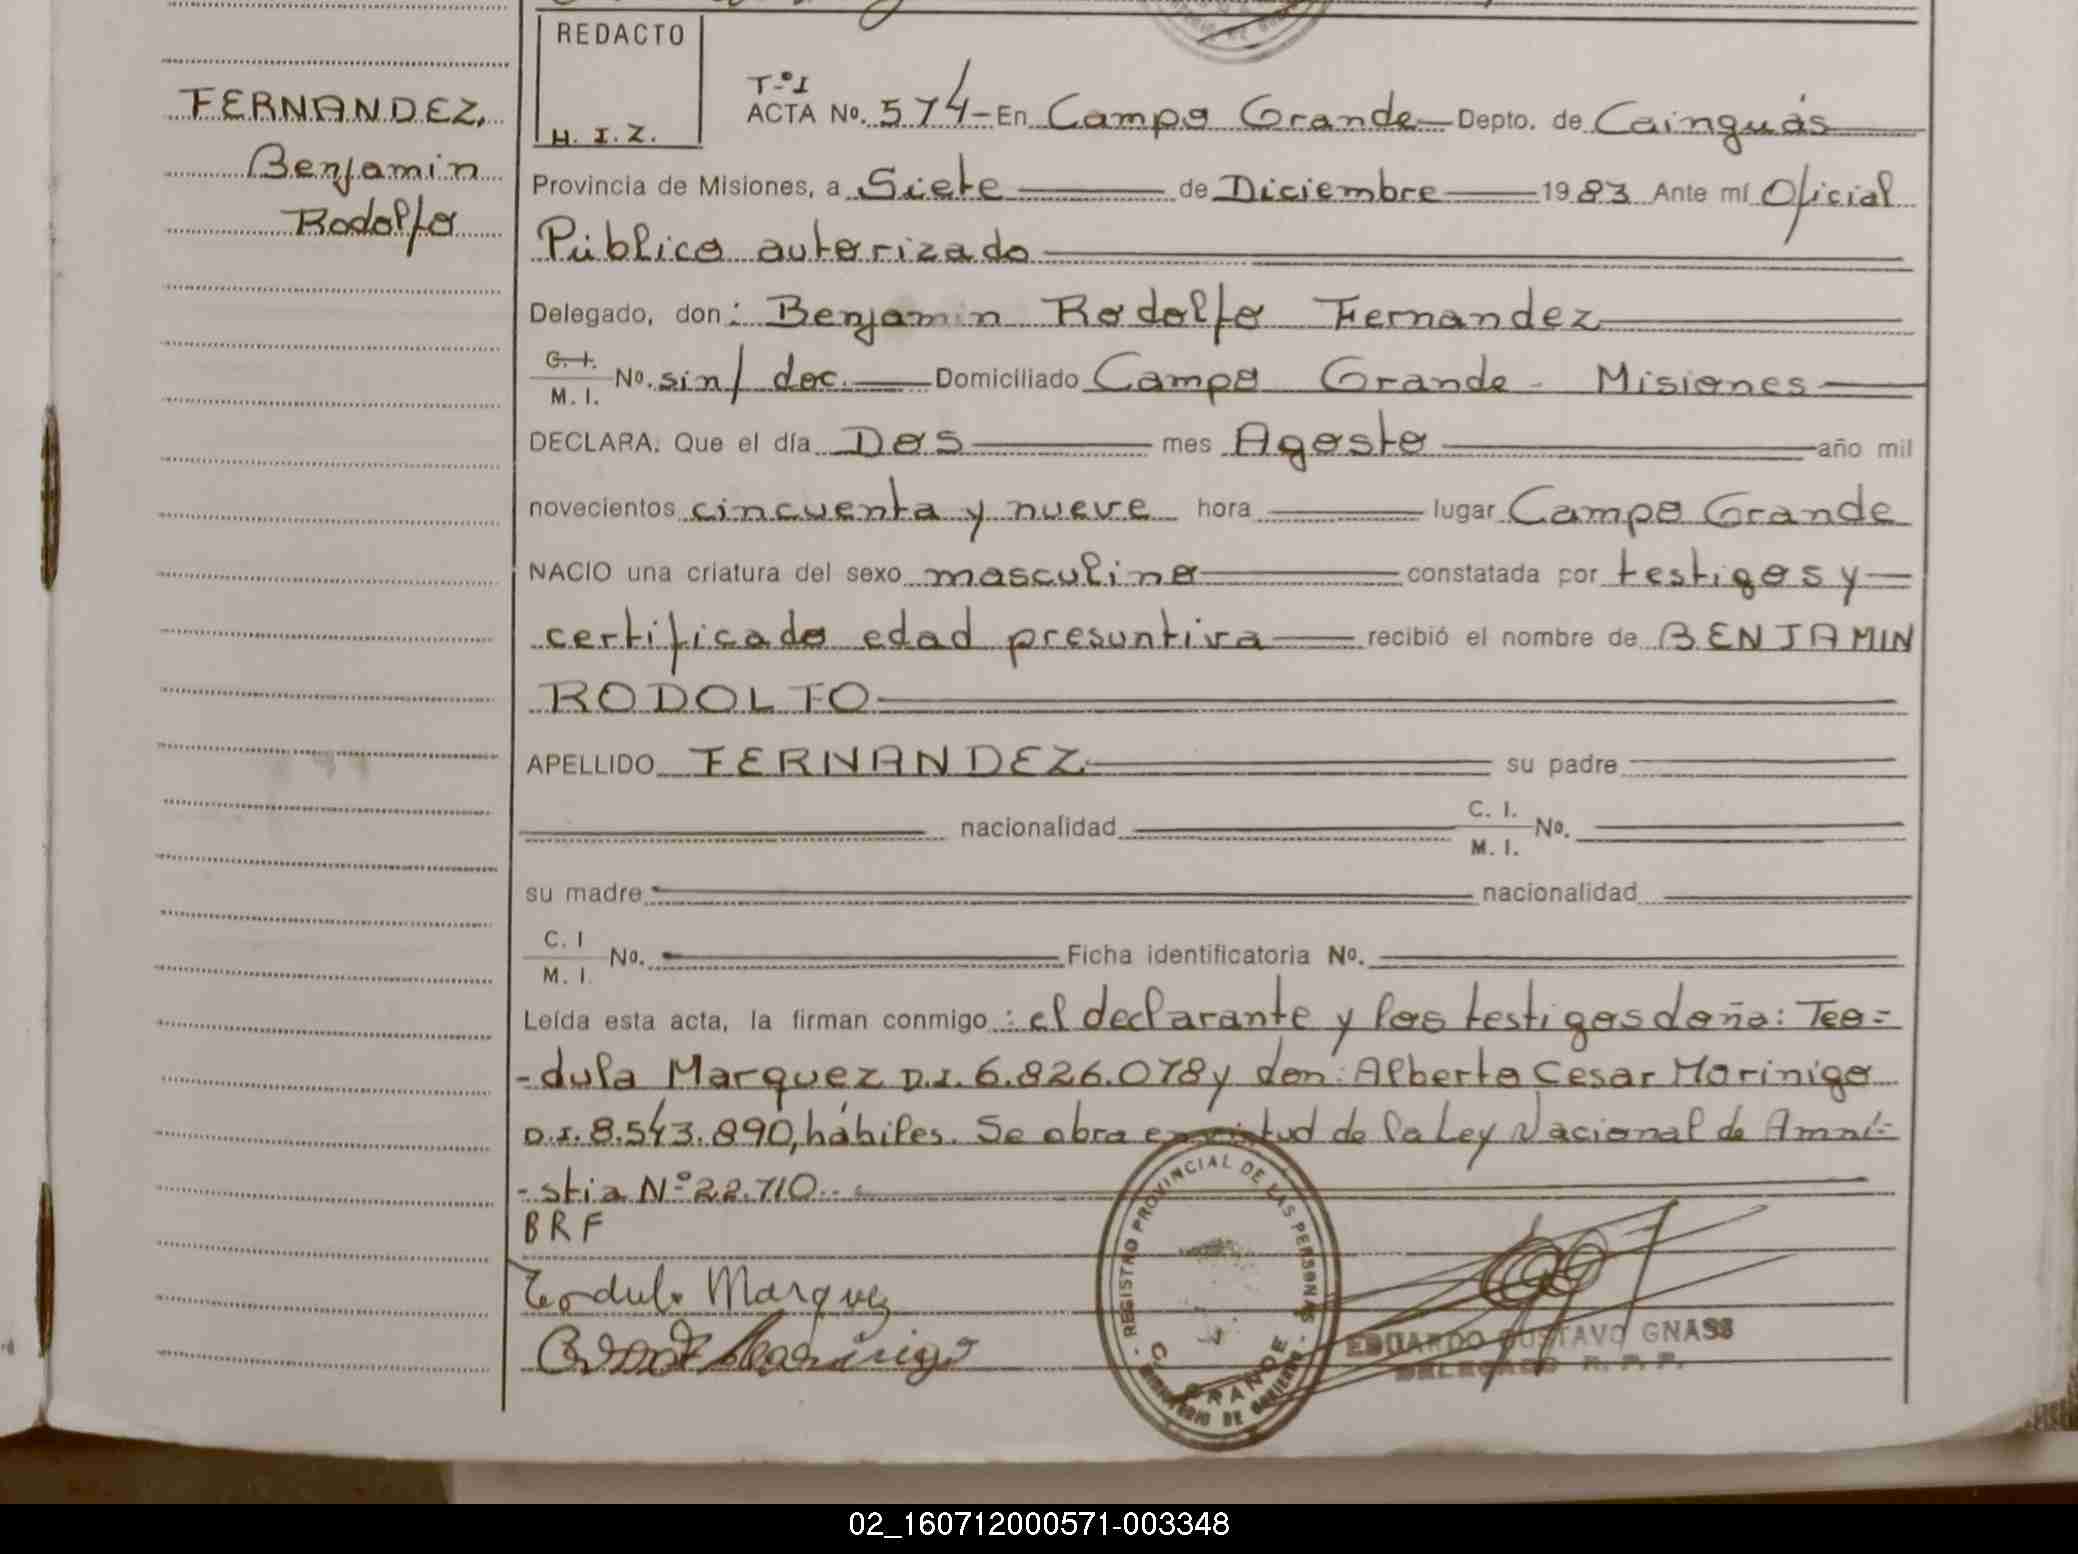 REDACTO
H. I. Z.
FERNANDEZ,
Benjamin
Rodolfo
T-º1
ACTA No. 574- En Campo Grande Depto. de Cainguás
Provincia de Misiones, a Siete de Diciembre 1983 Ante mí Oficial
Público autorizado
Delegado, don: Benjamin Rodolfo Fernandez
C. I.
M. I. No. sin/ doc. Domiciliado Campo Grande - Misiones
DECLARA: Que el día Dos mes Agosto año mil
novecientos cincuenta y nueve hora lugar Campo Grande
NACIO una criatura del sexo masculino constatada por testigos y
certificado edad presuntiva recibió el nombre de BENJAMIN
RODOLFO
APELLIDO FERNANDEZ su padre
nacionalidad C. I.
M. I. No.
su madre nacionalidad
C. I
M. I. No. Ficha identificatoria No.
Leída esta acta, la firman conmigo: el declarante y los testigos doña: Teo=
-dula Marquez D.I. 6.826.078 y don: Alberto Cesar Morinigo
D.I. 8.543.890, hábiles. Se obra en virtud de la Ley Nacional de Amni-
-stia N-º22.710.-
BRF
Teodula Marquez
REGISTRO PROVINCIAL DE LAS PERSONAS
C. GRANDE
MINISTERIO DE GOBIERNO
EDUARDO GUSTAVO GNASS
DELEGADO R. P. P.
02_160712000571-003348